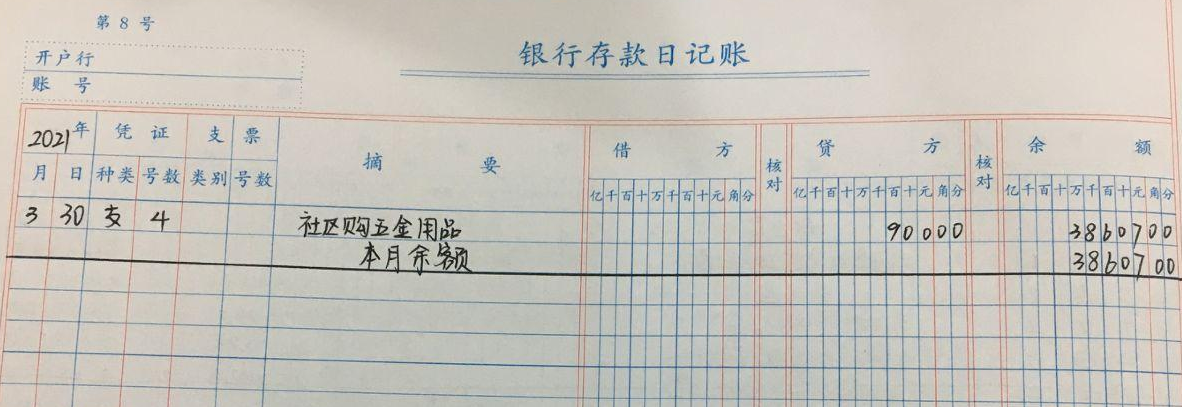 第 8 号
银行存款日记账
开户行
账 号
2021年 凭 证 支 票 摘 要 借 方 核对 贷 方 核对 余 额
月 日 种类 号数 类别 号数 亿千百十万千百十元角分 亿千百十万千百十元角分 亿千百十万千百十元角分
3 30 支 4 社区购五金用品 90000 3860700
本月余额 3860700